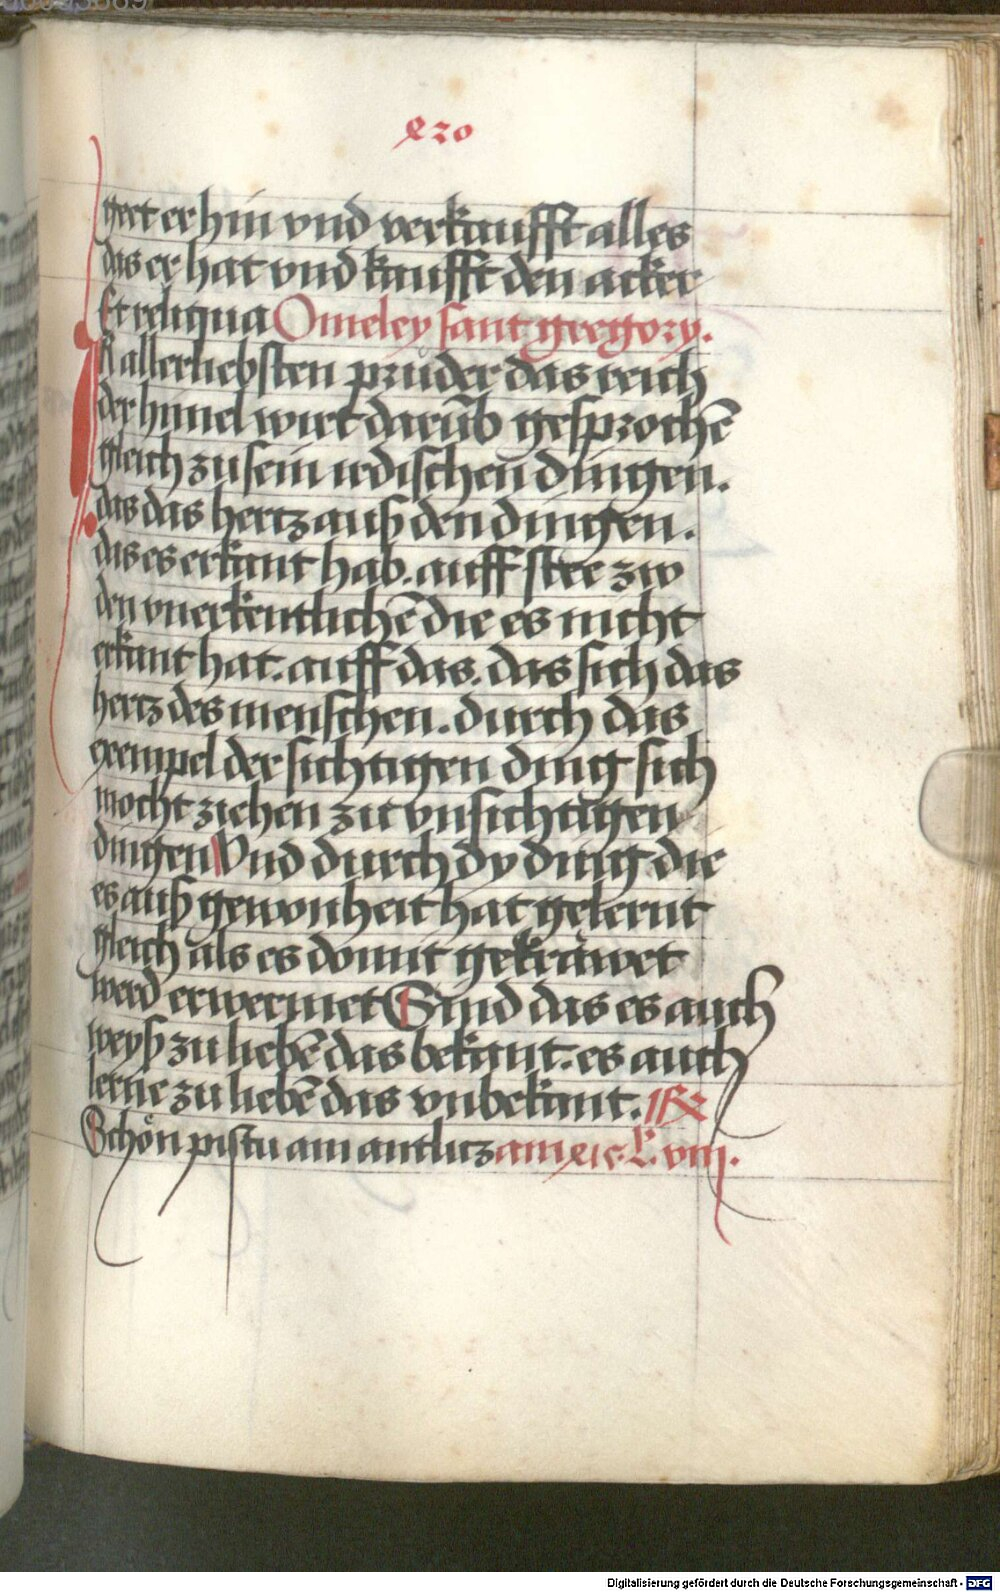 geet er hin vnd verkaufft alles
das er hat vnd kaufft den acker
Et reliqua Omeley sant gregory.
IR allerliebsten pruder das reich
der himel wirt darūb gesprochē
gleich zu sein irdischen dingen.
das das hertz auß den dingen.
das es erkant hab. auff stee zw
den vnerkentlichē die es nicht
erkant hat. auff das. das sich das
hertz des menschen. durch das
exempel der sichtigen ding sich
mocht ziehen zu vnsichtigen
dingen Vnd durch dy ding die
es auß gewonheit hat gelernt
gleich als es domit gekrawet
werd erwermet Sind das es auch
weyß zu liebē das bekant. es auch
lerne zu liebē das vnbekant.
Schön pistu am antlitz am
Digitalisierung gefördert durch die Deutsche Forschungsgemeinschaft - DFG